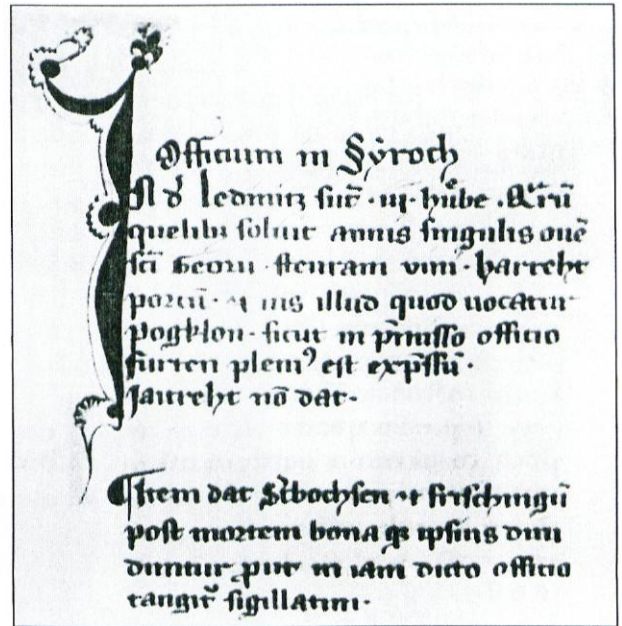 Officium in Gyroch
In d' Ledmitz sūt · iij · hūbe · Quarū
quelibet soluit annis singulis ouē
sci Georii · stenram vini · harreht
porcū · ⁊ ius illud quod uocatur
pogklon · sicut in p̄misso officio
furren pleniꝰ est exp̄ssū ·
Jaureht nō dat ·
Item dat Stbochsen ⁊ frischingū
post mortem bona qꝫ ipsius diui
duntur ꝓut in iam dicto officio
tangit᷑ sigillatim ·